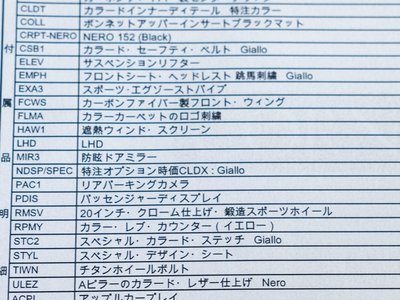 CLDT カラードインナーディテール 特注カラー
COLL ボンネットアッパーインサートブラックマット
CRPT-NERO NERO 152 (Black)
CSB1 カラード・セーフティ・ベルト Giallo
付 ELEV サスペンションリフター
EMPH フロントシート・ヘッドレスト 跳馬刺繍 Giallo
EXA3 スポーツ・エグゾーストパイプ
属 FCWS カーボンファイバー製フロント・ウィング
FLMA カラーカーペットのロゴ刺繍
HAW1 遮熱ウィンド・スクリーン
LHD LHD
品 MIR3 防眩ドアミラー
NDSP/SPEC 特注オプション時価CLDX : Giallo
PAC1 リアパーキングカメラ
PDIS パッセンジャーディスプレイ
明 RMSV 20インチ・クローム仕上げ・鍛造スポーツホイール
RPMY カラー・レブ・カウンター（イエロー）
STC2 スペシャル・カラード・ステッチ Giallo
STYL スペシャル・デザイン・シート
細 TIWN チタンホイールボルト
ULEZ Aピラーのカラード・レザー仕上げ Nero
ACPL アップルカープレイ